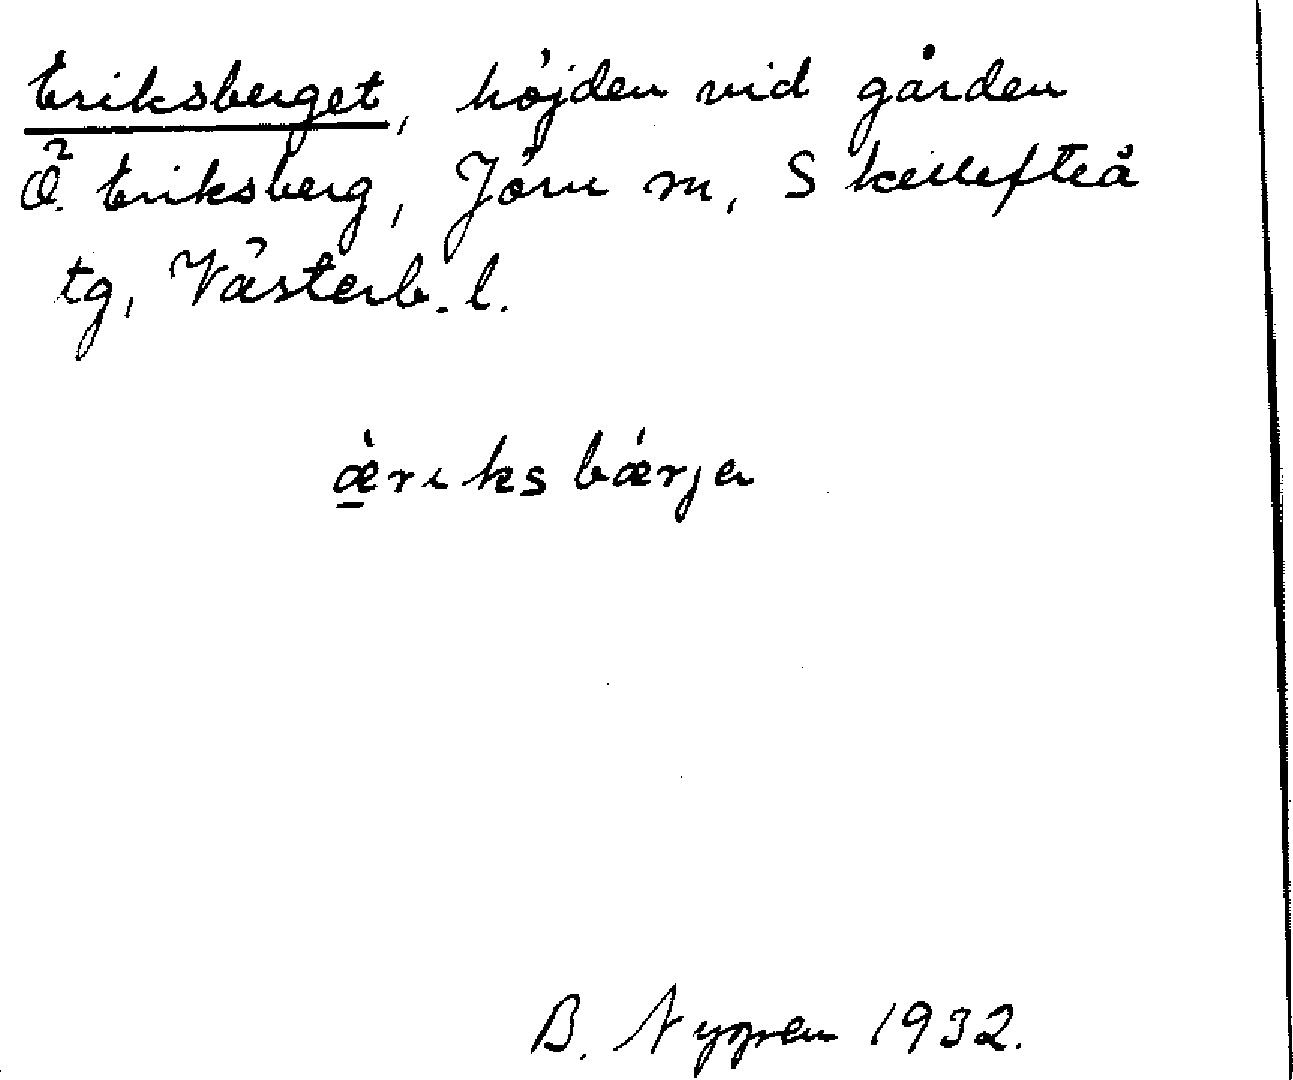 Eriksberget, höjden vid gården
Ö. Eriksberg, Jörn sn, Skellefteå
tg, Västerb. l.
æ̱̀rɩksbǽrjа
B. Nygren 1932.